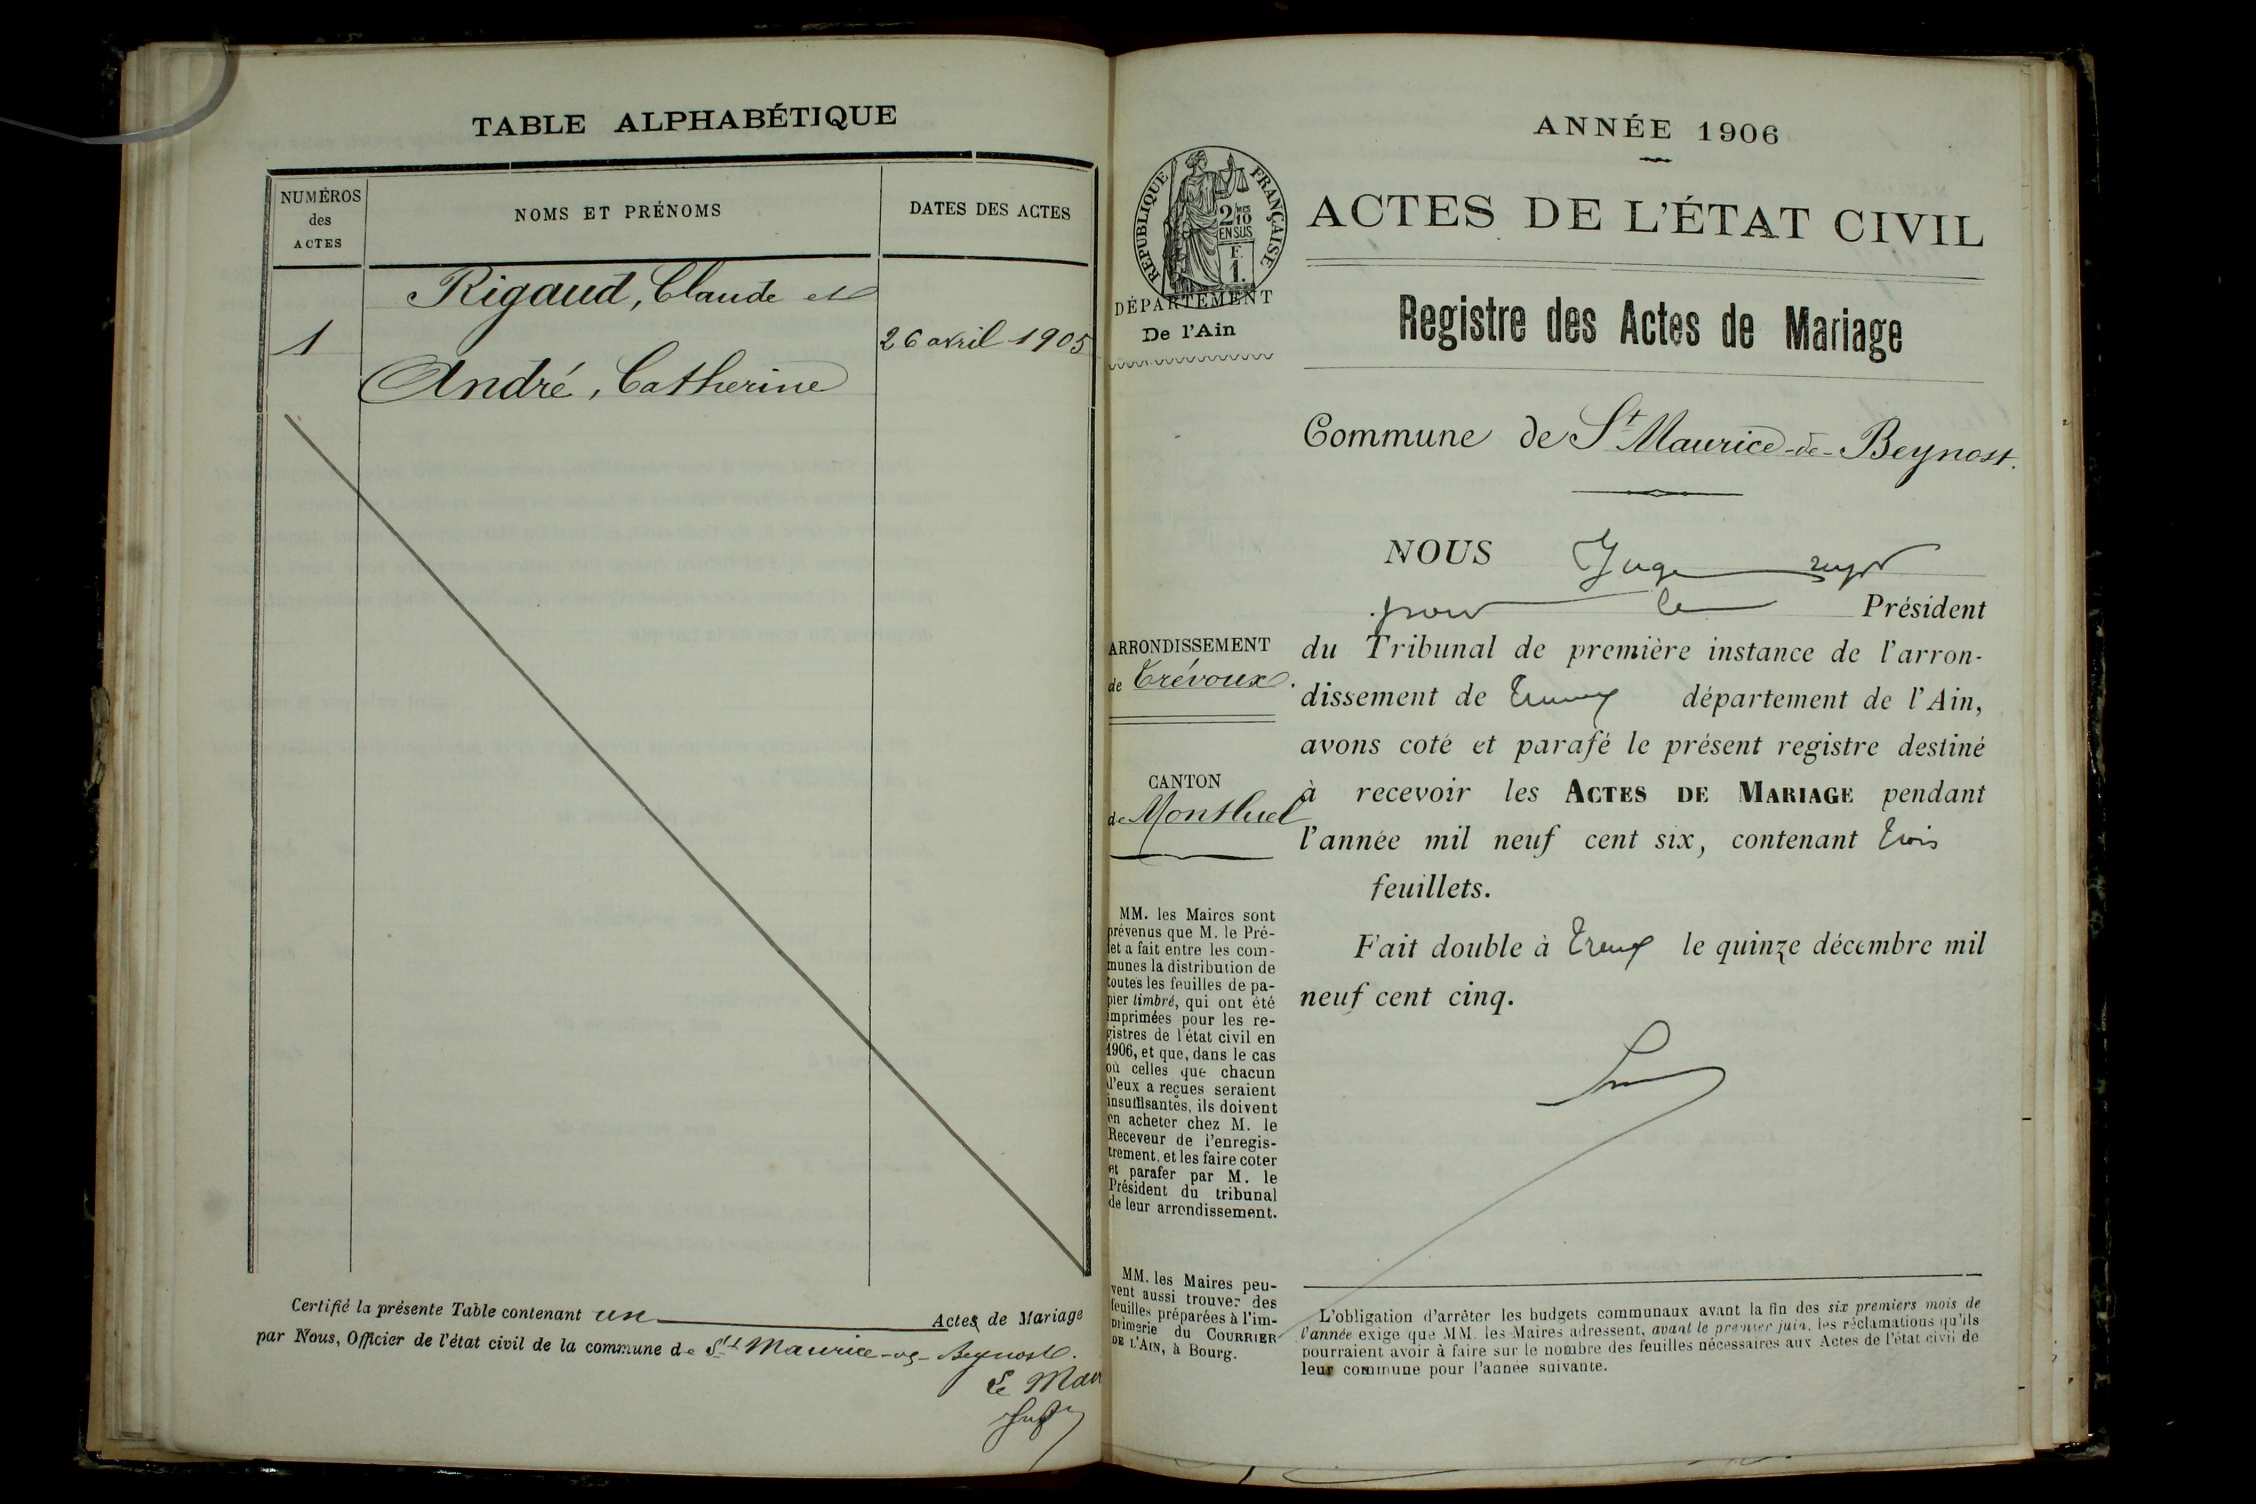 TABLE ALPHABÉTIQUE
NUMÉROS
des
ACTES
NOMS ET PRÉNOMS
DATES DES ACTES
Rigaud, Claude et
1
26 avril 1905
André, Catherine
Certifié la présente Table contenant un Actes de Mariage
par Nous, Officier de l'état civil de la commune de St Maurice-de-Beynost.
Le Mair
ANNÉE 1906
RÉPUBLIQUE FRANÇAISE
2/10
EN SUS
F.
1.
DÉPARTEMENT
De l'Ain
ARRONDISSEMENT
de Trévoux.
CANTON
de Montluel
MM. les Maires sont
prévenus que M. le Pré-
fet a fait entre les com-
munes la distribution de
toutes les feuilles de pa-
pier timbré, qui ont été
imprimées pour les re-
gistres de l'état civil en
1906, et que, dans le cas
où celles que chacun
d'eux a reçues seraient
insuffisantes, ils doivent
en acheter chez M. le
Receveur de l'enregis-
trement, et les faire coter
et parafer par M. le
Président du tribunal
de leur arrondissement.
MM. les Maires peu-
vent aussi trouver des
feuilles préparées à l'im-
primerie du COURRIER
DE L'AIN, à Bourg.
ACTES DE L'ÉTAT CIVIL
Registre des Actes de Mariage
Commune de St Maurice-de-Beynost.
NOUS Juge
pour le Président
du Tribunal de première instance de l'arron-
dissement de Trévoux département de l'Ain,
avons coté et parafé le présent registre destiné
à recevoir les ACTES DE MARIAGE pendant
l'année mil neuf cent six, contenant trois
feuillets.
Fait double à Trévoux le quinze décembre mil
neuf cent cinq.
L'obligation d'arrêter les budgets communaux avant la fin des six premiers mois de
l'année exige que MM. les Maires adressent, avant le premier juin, les réclamations qu'ils
pourraient avoir à faire sur le nombre des feuilles nécessaires aux Actes de l'état civil de
leur commune pour l'année suivante.